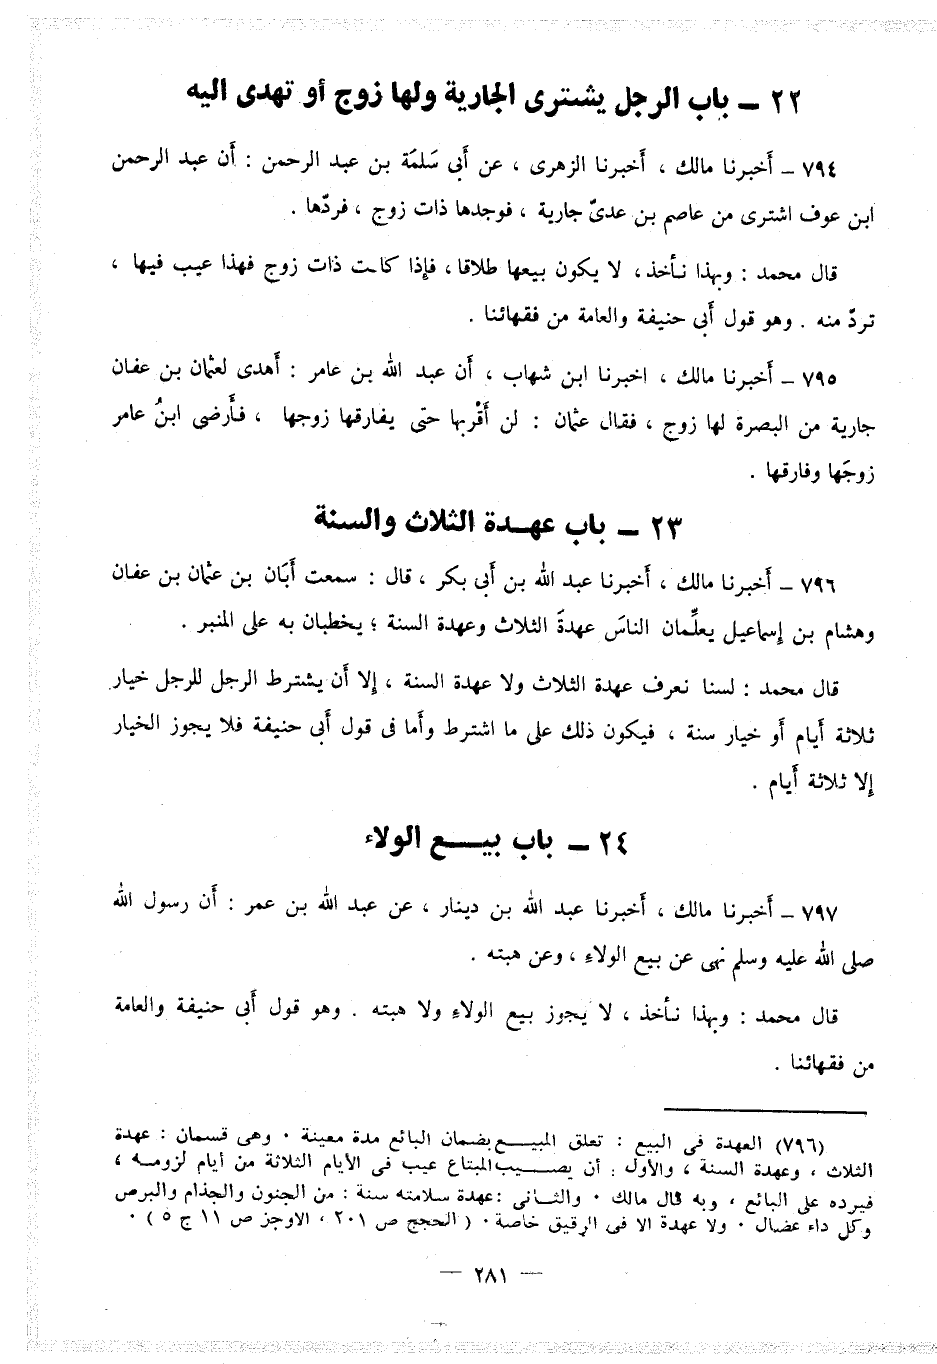 ٢٢ – باب الرجل يشترى الجارية ولها زوج أو تهدى اليه
٧٩٤ – أَخبرنا مالك ، أَخبرنا الزهرى ، عن أَبى سَلمَة بن عبد الرحمن : أَن عبد الرحمن
ابن عوف اشترى من عاصم بن عدىّ جارية ، فوجدها ذات زوج ، فردّها .
قال محمد : وبهذا نأخذ، لا يكون بيعها طلاقا، فإِذا كانت ذات زوج فهذا عيب فيها ،
تردّ منه . وهو قول أَبى حنيفة والعامة من فقهائنا .
٧٩٥ – أَخبرنا مالك ، اخبرنا ابن شهاب ، أَن عبد الله بن عامر : أَهدى لعثمان بن عفان
جارية من البصرة لها زوج ، فقال عثمان : لن أَقْربها حتى يفارقها زوجها ، فأَرضى ابنُ عامر
زوجَها وفارقها .
٢٣ – باب عهـدة الثلاث والسنة
٧٩٦ – أَخبرنا مالك ، أَخبرنا عبد الله بن أَبى بكر ، قال : سمعت أَبَان بن عثمان بن عفان
وهشام بن إِسماعيل يعلِّمان الناسَ عهدةَ الثلاث وعهدة السنة ؛ يخطبان به على المنبر .
قال محمد : لسنا نعرف عهدة الثلاث ولا عهدة السنة ، إِلا أَن يشترط الرجل للرجل خيار
ثلاثة أَيام أَو خيار سنة ، فيكون ذلك على ما اشترط وأَما فى قول أَبى حنيفة فلا يجوز الخيار
إِلا ثلاثة أَيام .
٢٤ – باب بيـــع الولاء
٧٩٧ – أَخبرنا مالك ، أَخبرنا عبد الله بن دينار ، عن عبد الله بن عمر : أَن رسول الله
صلى الله عليه وسلم نهى عن بيع الولاءِ ، وعن هبته .
قال محمد : وبهذا نأخذ ، لا يجوز بيع الولاءِ ولا هبته . وهو قول أَبى حنيفة والعامة
من فقهائنا .
(٧٩٦) العهدة فى البيع : تعلق المبيـــع بضمان البائع مدة معينة ٠ وهى قسمان : عهدة
الثلاث ، وعهدة السنة ، والأول : أن يصـــيب المبتاع عيب فى الأيام الثلاثة من أيام لزومـه ،
فيرده على البائع ، وبه قال مالك ٠ والثـانى : عهدة سلامته سنة : من الجنون والجذام والبرص
وكل داء عضال ٠ ولا عهدة الا فى الرقيق خاصة ٠ ( الحجج ص ٢٠١ ، الاوجز ص ١١ ج ٥ ) ٠
— ٢٨١ —